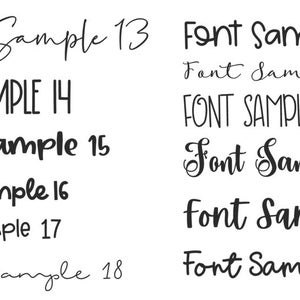 Sample 13
MPLE 14
ample 15
mple 16
ple 17
ample 18
Font Sam
Font Sam
FONT SAMPL
Font Sam
Font Sa
Font Sam